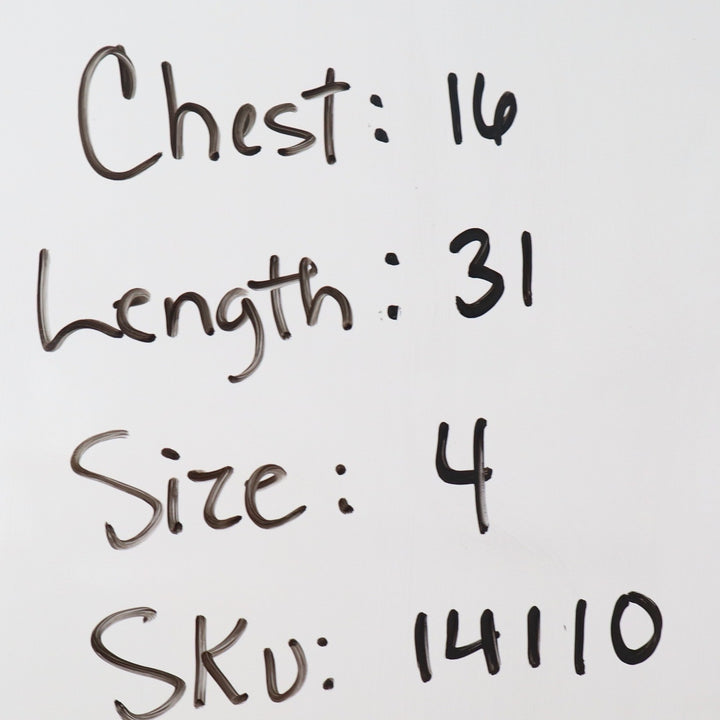 Chest: 16
Length: 31
Size: 4
SKU: 14110